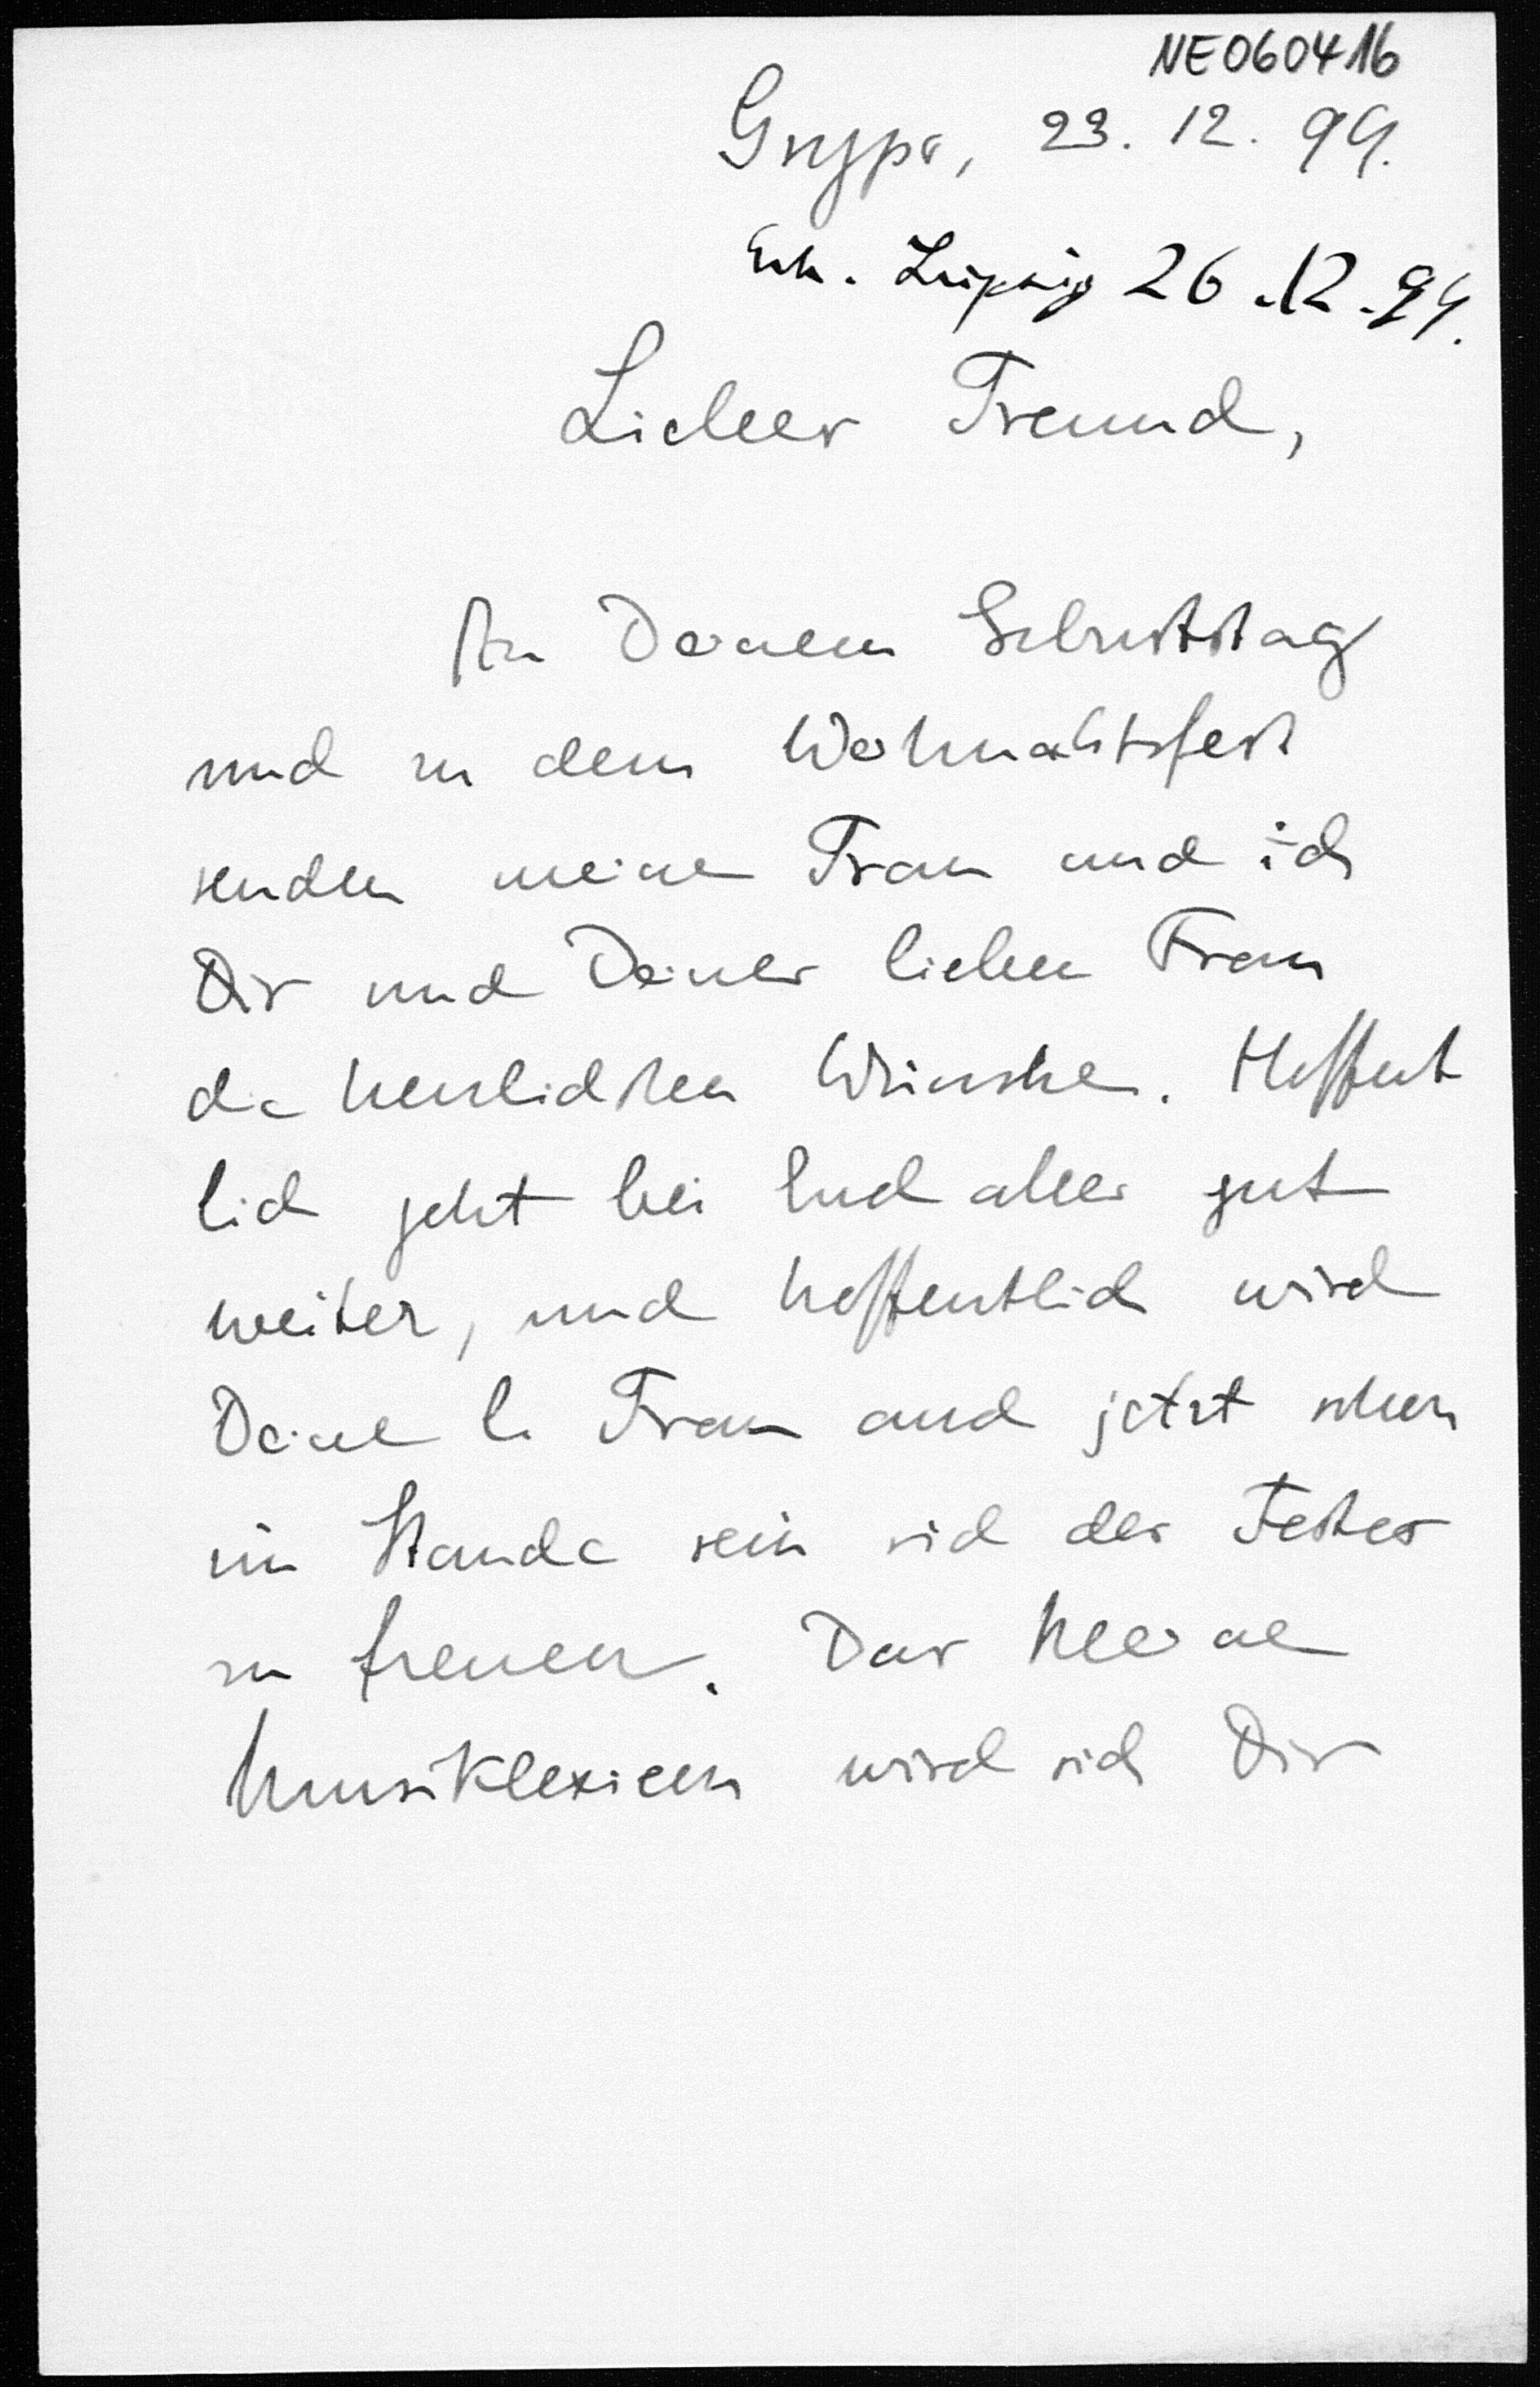 NE060416
Gryps, 23. 12. 99.
Erh. Leipzig 26.12.99.
Lieber Freund,
An Deinem Geburtstag
und zu dem Weihnachtsfest
senden meine Frau und ich
Dir und Deiner lieben Frau
die herzlichsten Wünsche. Hoffent
lich geht bei Euch alles gut
weiter, und hoffentlich wird
Deine l. Frau auch jetzt schon
im Stande sein sich des Festes
zu freuen. Das kleine
Musiklexicon wird sich Dir